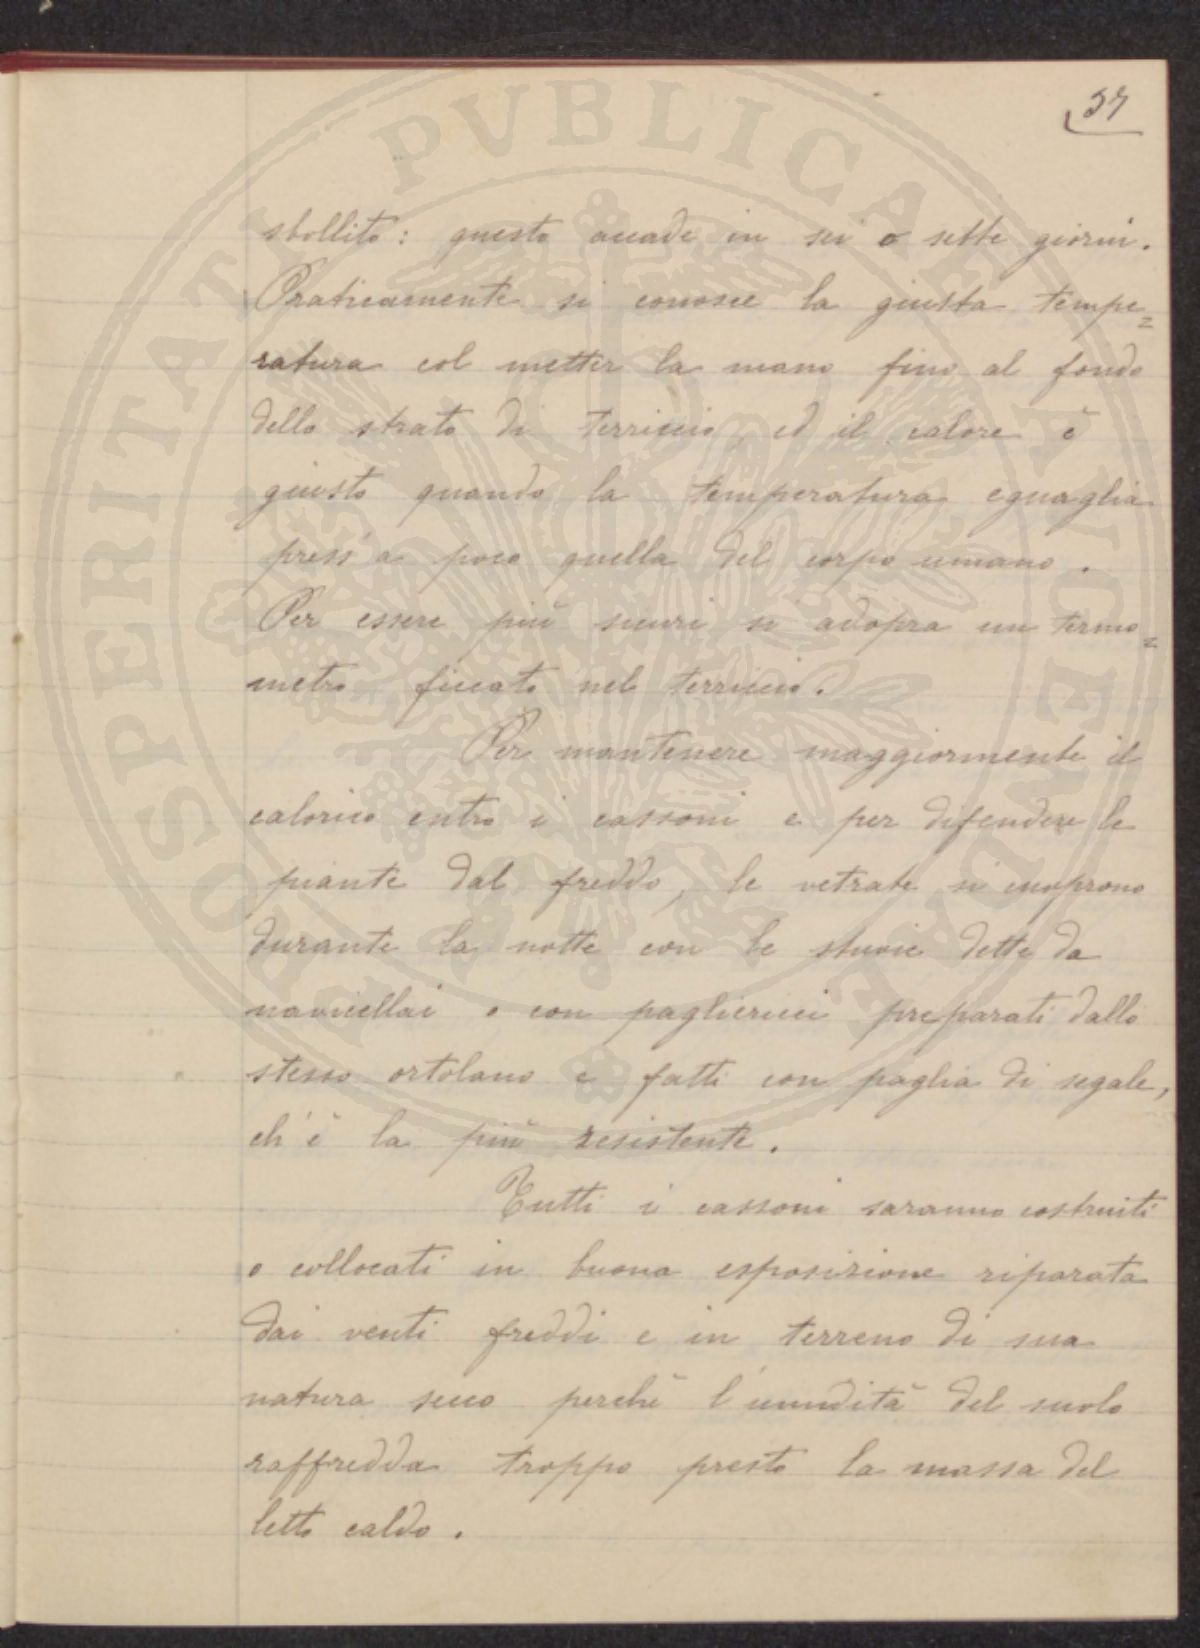 57
sbollito: questo accade in sei o sette giorni.
Praticamente si conosce la giusta tempe=
ratura col metter la mano fino al fondo
dello strato di terriccio, ed il calore è
giusto quando la temperatura eguaglia
press'a poco quella del corpo umano.
Per essere più sicuri si adopra un termo=
metro ficcato nel terriccio.
Per mantenere maggiormente il
calorico entro i cassoni e per difendere le
piante dal freddo, le vetrate si cuoprono
durante la notte con le stuoie dette da
navicellai o con pagliericci preparati dallo
stesso ortolano e fatti con paglia di segale,
ch'è la più resistente.
Tutti i cassoni saranno costruiti
o collocati in buona esposizione riparata
dai venti freddi e in terreno di sua
natura secco perchè l'umidità del suolo
raffredda troppo presto la massa del
letto caldo.
PROSPERITATI PVBLICAE AVGENDAE